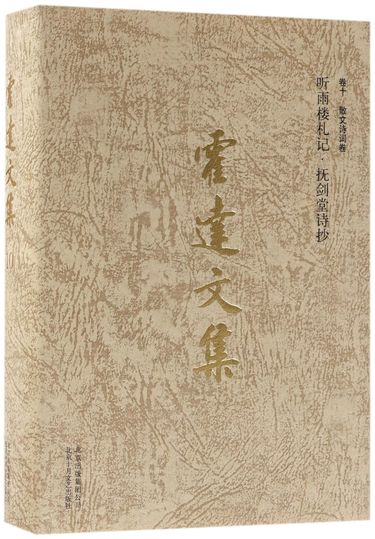 卷十 散文诗词卷
听雨楼札记·抚剑堂诗抄
霍达文集
北京出版集团公司
北京十月文艺出版社
霍达文集